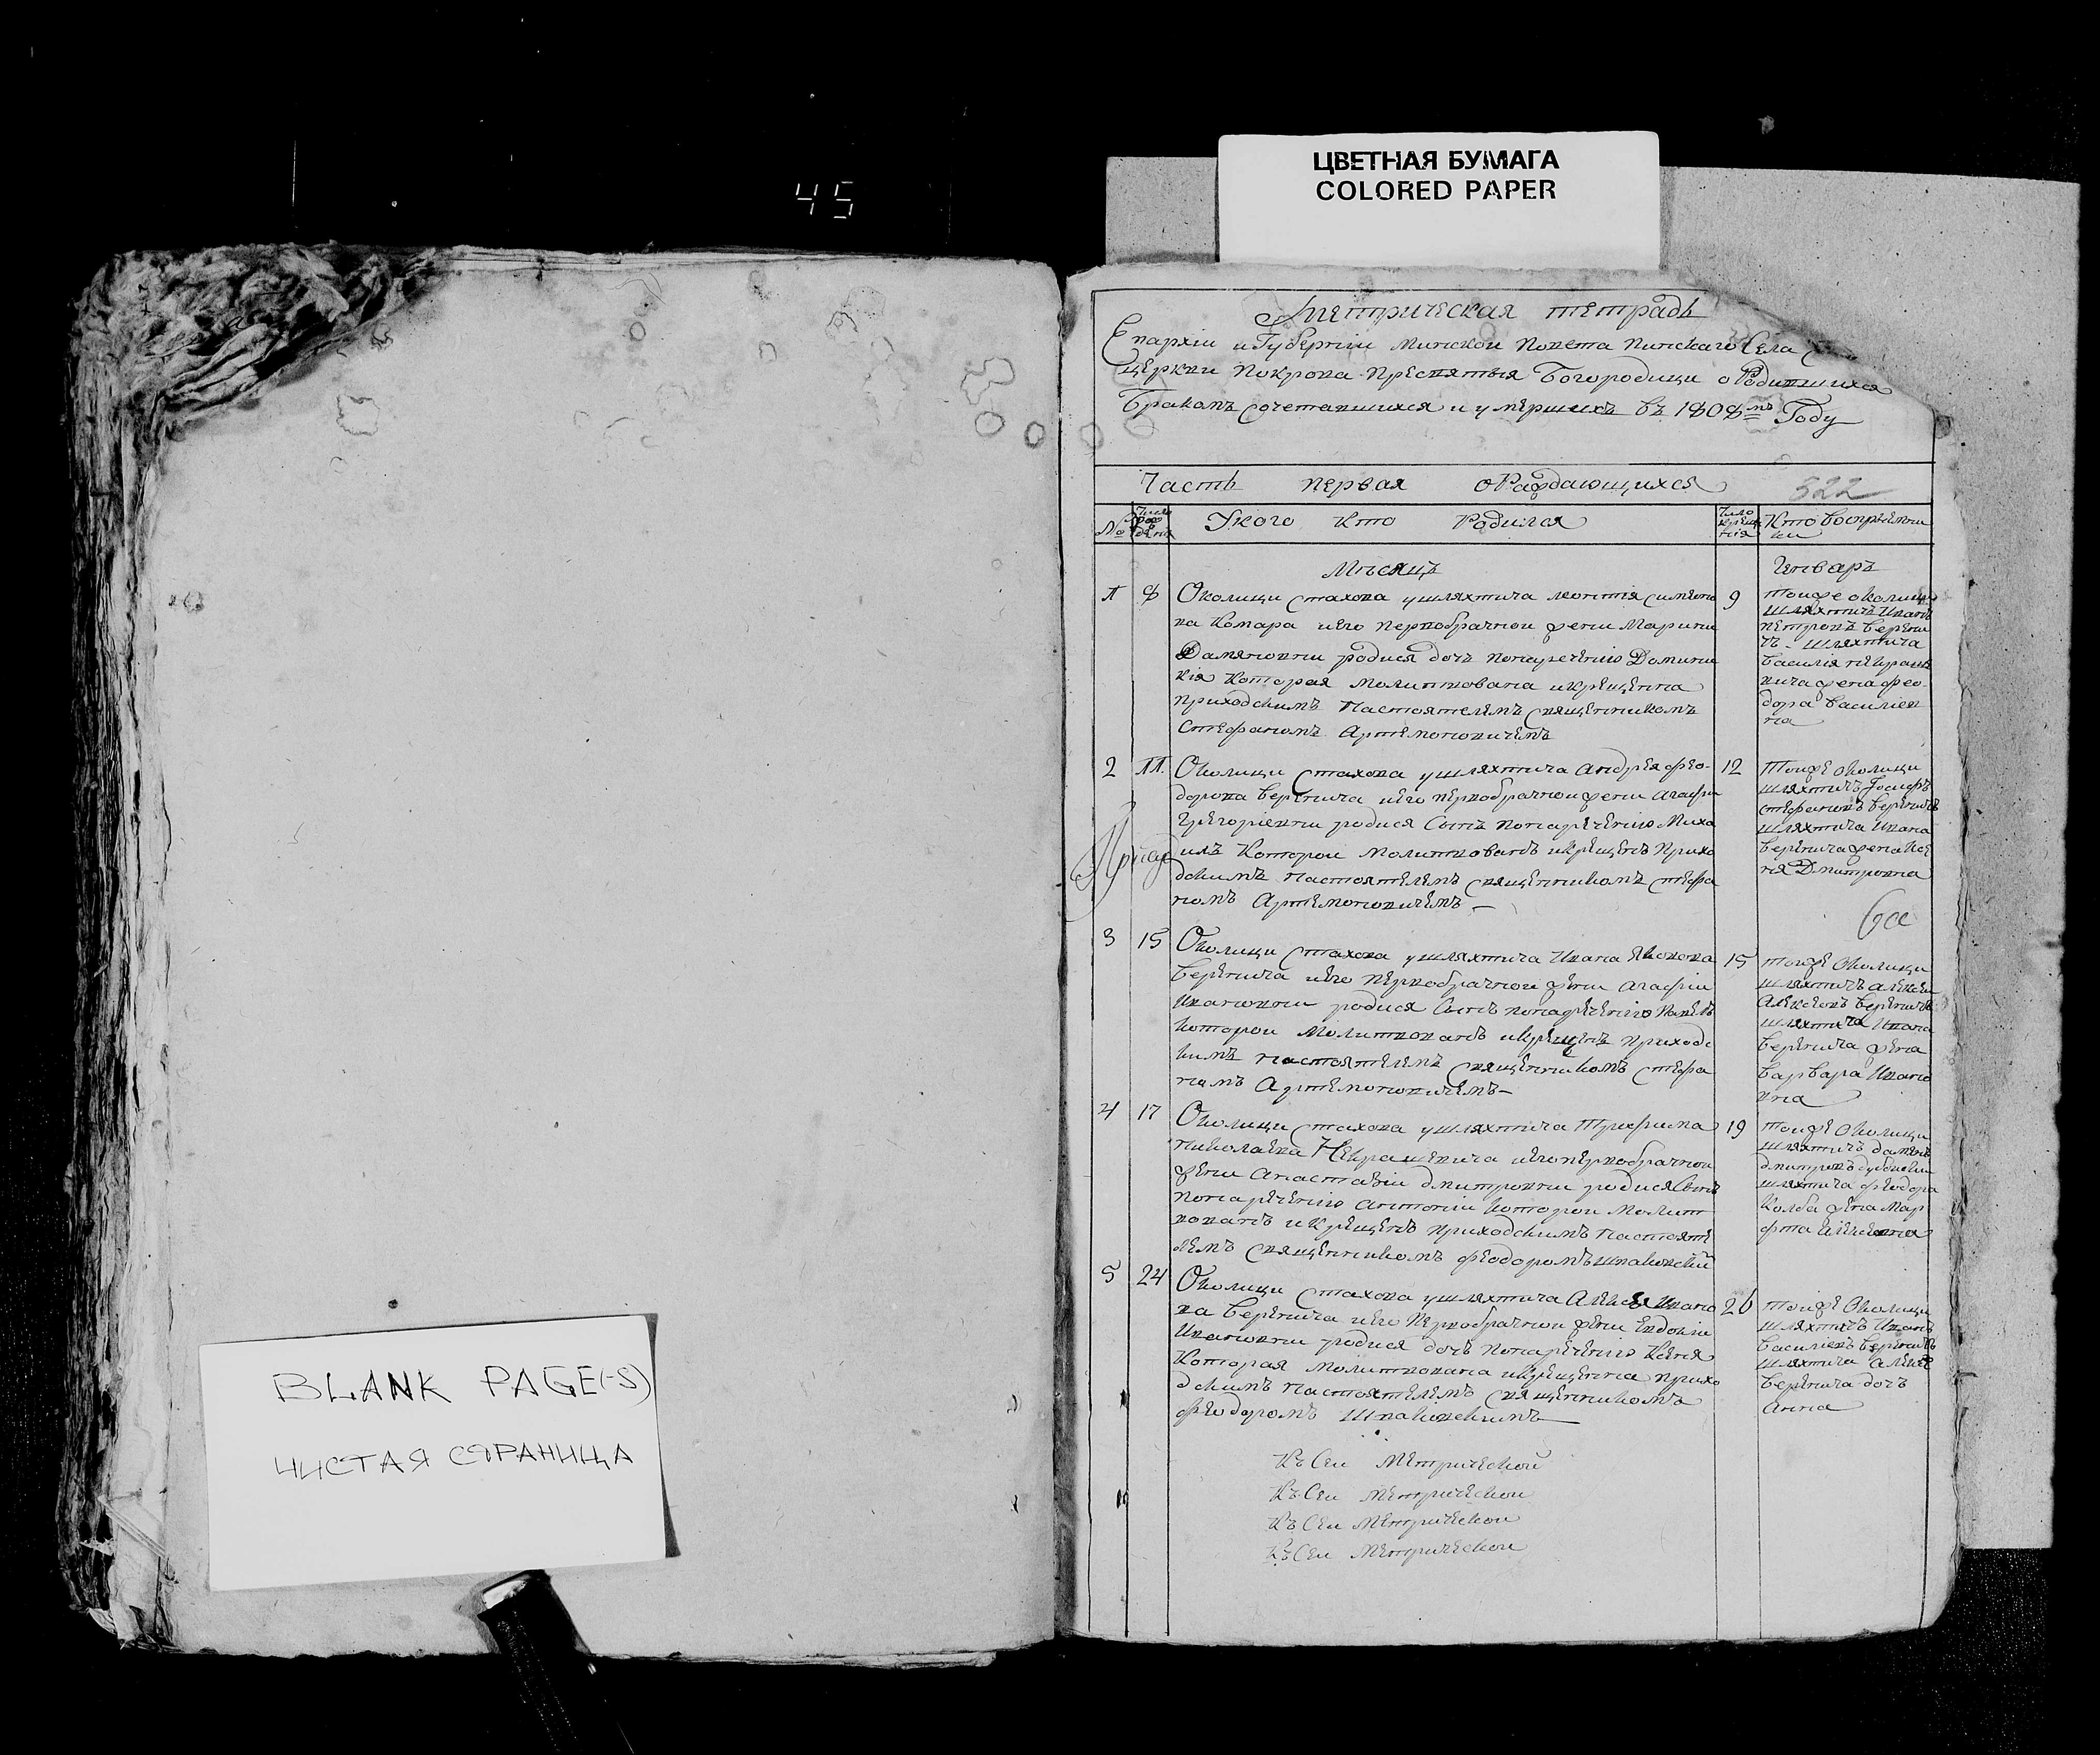 45
ЦВЕТНАЯ БУМАГА
COLORED PAPER
Метрическая тетрадь
Епархіи и Губерніи Минской Повета Пинскаго Села
Церкви Покрова Пресвятыя Богородици о Родившихся
Бракомъ сочетавшихся и умершихъ въ 1808мъ Году
Часть первая о Раждающихся
522
№ Число рож дения У кого кто родился Число креще нія Кто восприемни ки
Месяцъ Генваръ
1 8 Околици Стахова у шляхтича Леонтія Симеоно 9
ва Комара и его первобрачной жени Марини
Дамяновни родися дочъ понаречению Домини
кія Которая Молитвована и крещенна
приходскимъ Настоятелемъ священникомъ
Стефаномъ Артемоновичемъ
тоиже околици
шляхтичъ Иванъ
Петровъ Верени
чъ - шляхтича
Василія Некраше
вича жена Фео
дора Василиев
на
2 11 Околици Стахова у шляхтича Андрея Фео- 12
дорова Веренича и его первобрачной жени Агафии
Григоріевни родися Синъ понаречению Миха
илъ Которои Молитвованъ и крещенъ Прихо
дскимъ Настоятелемъ священникомъ Стефа
номъ Артемоновичемъ -
Тоиже околици
шляхтичъ Іосифъ
Стефановъ Вереничъ
шляхтича Ивана
Веренича жена Ксе
ния Дмитровна
6а
3 15 Околици Стахова у шляхтича Ивана Яковова 15
Веренича и его первобрачной жени Агафии
Ивановни родися Синъ понаречению Павелъ
которои Молитвованъ и крещенъ приходс
кимъ настоятелемъ священникомъ Стефа
номъ Артемоновичемъ -
тоиже Околици
шляхтичъ Алексеи
Алексеевъ Вереничъ
шляхтича Ивана
Веренича жена
Варвара Ивано
вна
4 17 Околици Стахова у шляхтича Трифима 19
Николаева Некрашевича и его первобрачной
жени Анастасии Дмитровни родися Синъ
понаречению Антоніи которои Молит
вованъ и крещенъ приходскимъ Настояте
лемъ священникомъ Феодоромъ Шпаковским
тоиже Околици
шляхтичъ Дамянъ
Дмитровъ
шляхтича Феодора
Колба жена Мар
фта Алексеевна
5 24 Околици Стахова у шляхтича Алексея Ивано 26
ва Веренича и его Первобрачной жени Евдокіи
Ивановни родися дочъ понаречению Ксения
Которая Молитвована и крещенна прихо
дскимъ настоятелемъ священникомъ
Феодоромъ Шпаковскимъ
тоиже Околици
шляхтичъ Иванъ
Василіевъ Вереничъ
шляхтича Алексея
Веренича дочъ
Анна
Къ Сеи Метрической
Къ Сеи Метрической
Къ Сеи Метрической
Къ Сеи Метрической
BLANK PAGE(-S)
ЧИСТАЯ СТРАНИЦА